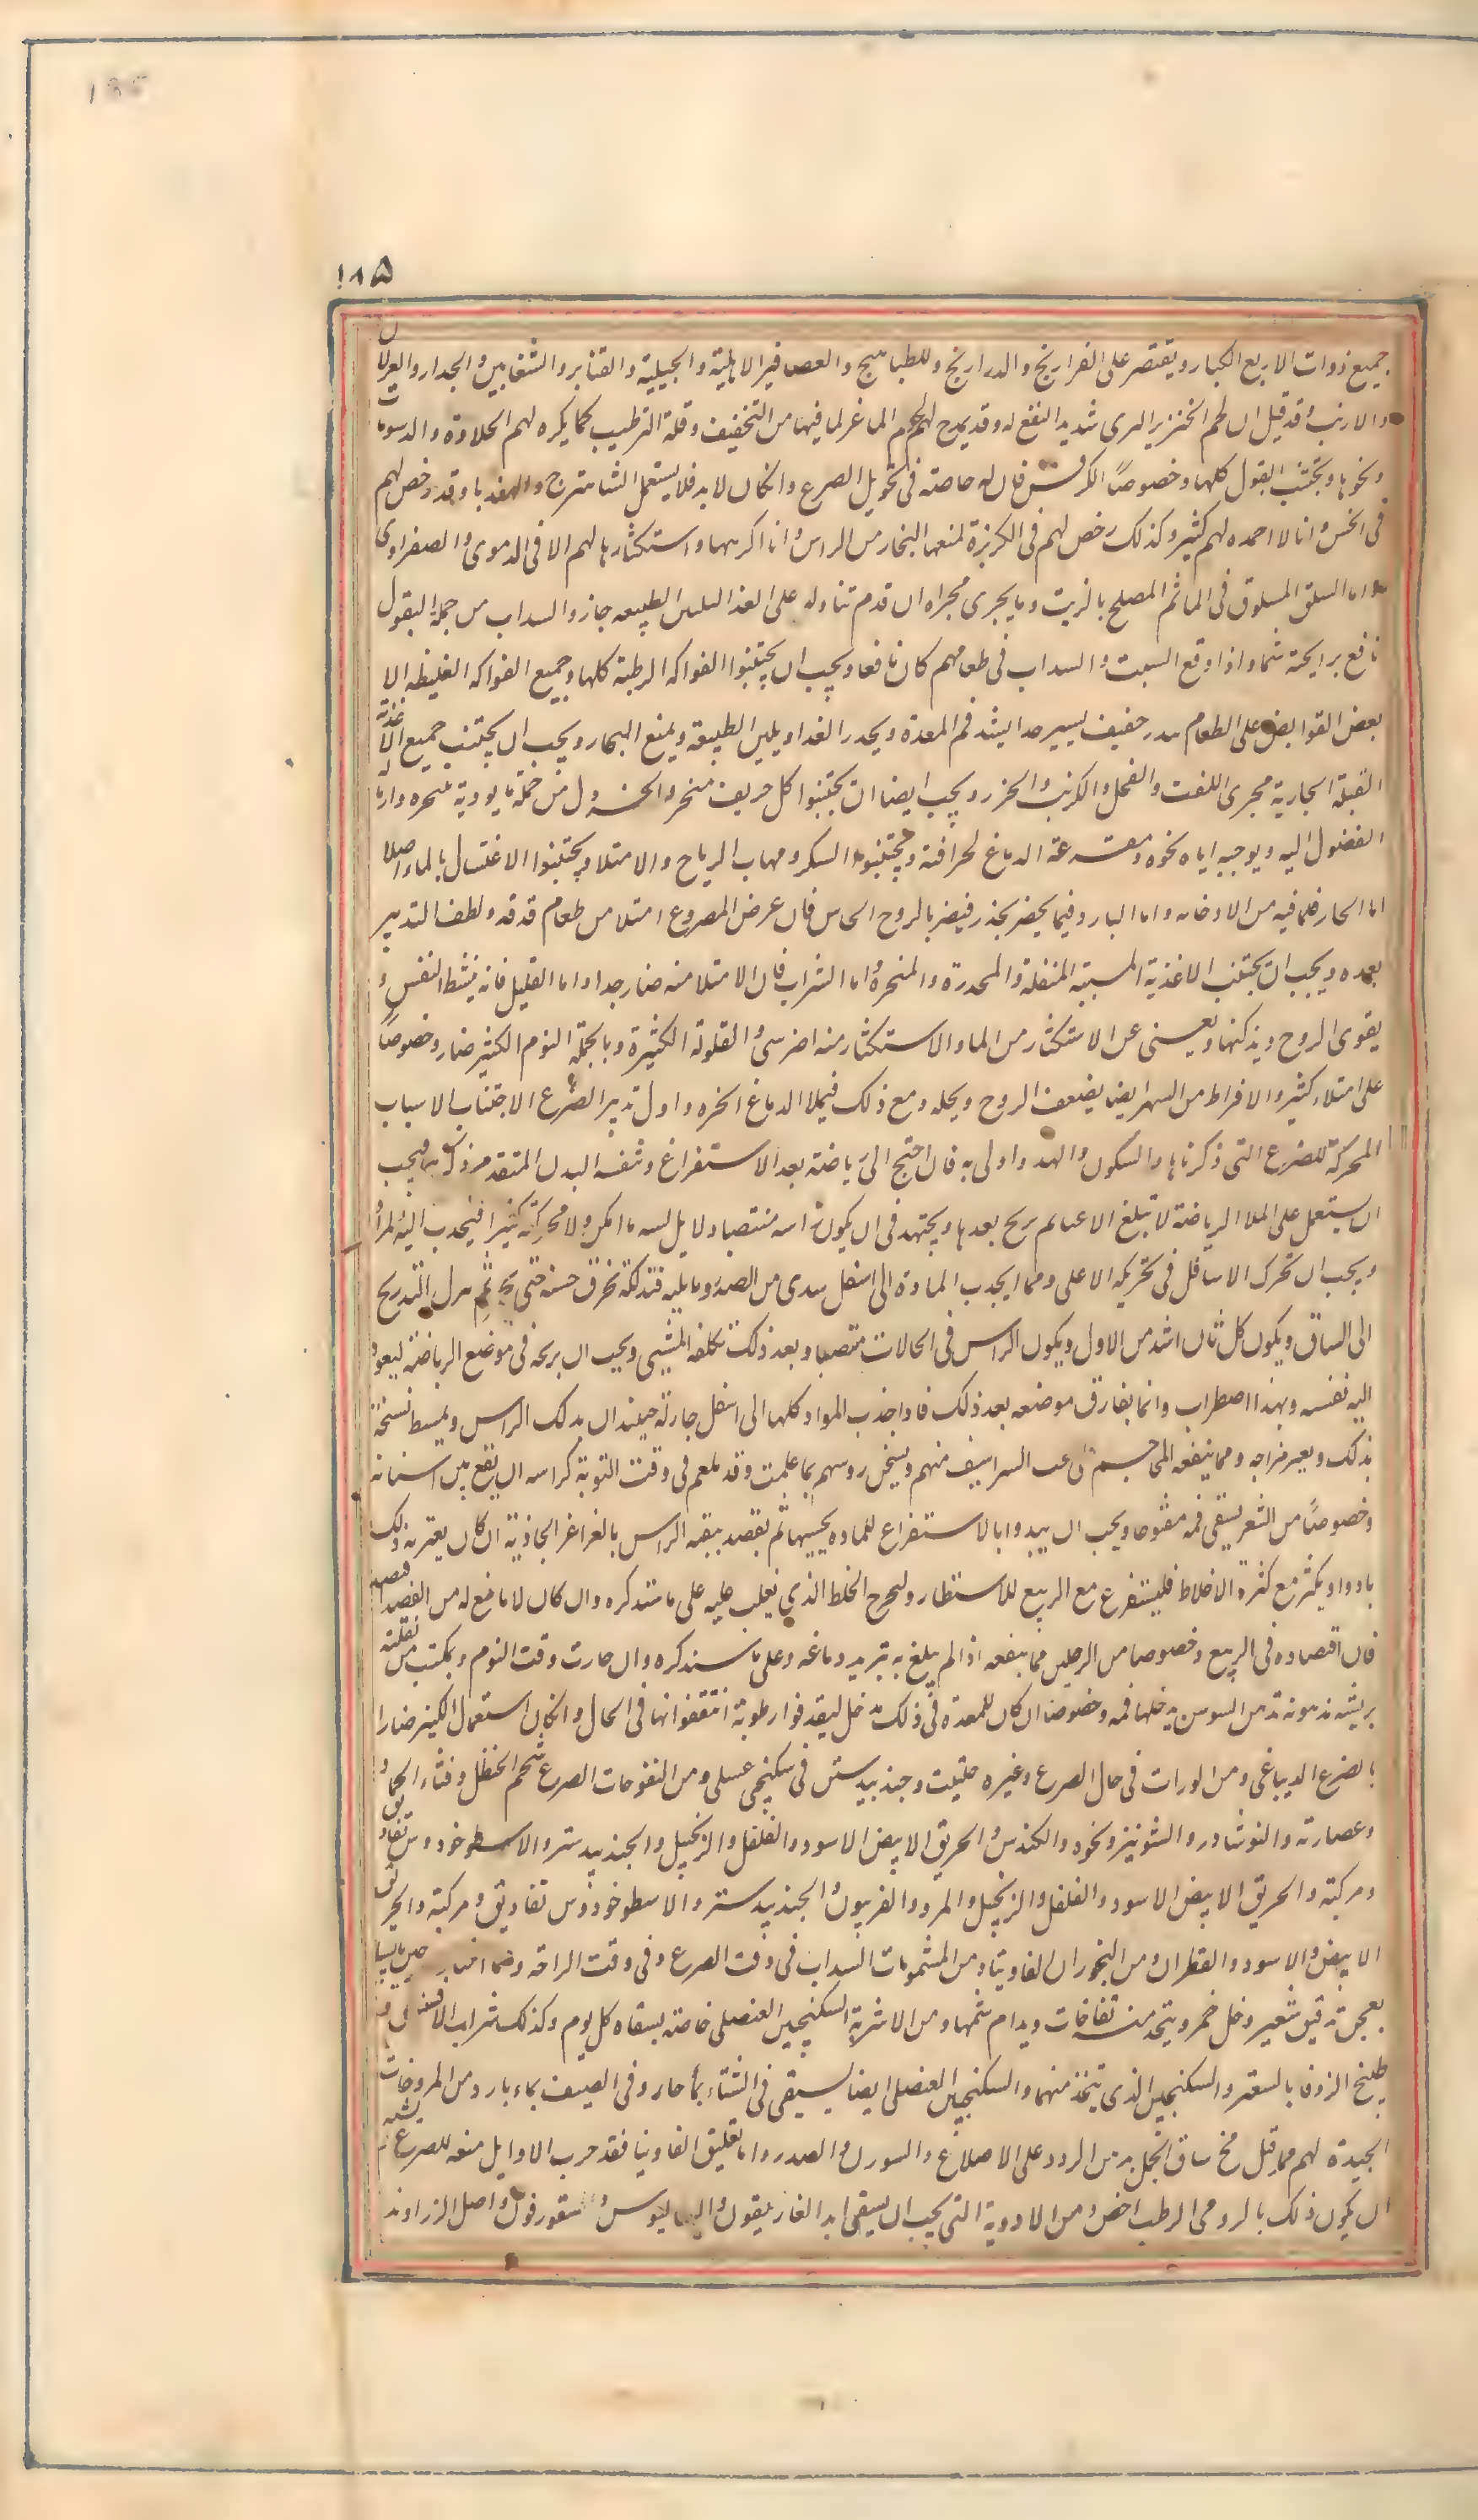 185
١٨٥
جميع ذوات الاربع الكبار ويقتصر على الفراريخ والدراريخ وللطباهيج والعصافير الاهلية والجبلية والقنابر والشفانين والجدار والغزلان
والارنب وقد قيل ان لحم الخنزير البرى شديد النفع له وقد يمدح لهم لحوم الماعز لما فيها من التخفيف وقلة الترطيب كما يكره لهم الحلاوة والدسومات
ونحوها ويجتنب البقول كلها وخصوصاً الكرفس فان له خاصته فى تحويل الصرع وان كان لابد فلايستعمل الشاهترج والهندبا وقد رخص لهم
فى الخس وانا لا احمده لهم كثير وكذلك رخص لهم فى الكزبرة لمنعها البخار من الراس وانا اكرهها واستكثارها لهم الا فى الدموى والصفراوى
واما السلق المسلوق فى الما ثم المصلح بالزيت وما يجرى مجراه ان قدم تناوله على الغذا الطبيعه جاز والسداب من جملة البقول
نافع برايحته شما واذا وقع السبت والسداب فى طعامهم كان نافعا ويجب ان يجتنبوا الفواكه الرطبة كلها وجميع الفواكه الغليظه الا
بعض القوابض على الطعام خفيف يسير جدا يشد فم المعدة ويحدر الغدا ويلين الطبيعة ويمنع البخار ويجب ان يجتنب جميع الاغذية
القبلة الجارية مجرى اللفت والفجل والكرنب والجزر ويجب ايضا ان يجتنبوا كل حريف مبخر والخردل من جملة ما يوديه بتبخيره وارساله
الفضول اليه ويوجبه اياه نحوه الدماغ لحرافته ويجتنبوا السكر ومهاب الرياح والامتلا ويجتنبوا الاغتسال بالماء اصلا
اما الحار فلما فيه من الارخاء واما البارد فيما يحضر يخدر فيضر بالروح الحاس فان عرض المصروع امتلا من طعام قدفه ولطف التدبير
بعده ويجب ان يجتنب الاغذية المسبته المثقلة والمحدرة والمبخرة واما الشراب فان الامتلا منه ضار جدا واما القليل فانه ينشط النفس و
يقوى الروح ويذكيها ويعينى عن الاستكثار من الما والاستكثار منه اضر سى والقلولة الكثيرة وبالجملة النوم الكثير ضار وخصوصاً
على امتلاء كثير والافراط من السهر ايضا يضعف الروح ويحله ومع ذلك فيملا الدماغ ابخره واول تدبير الصرع الاجتناب الاسباب
المحركة للصرع التى ذكرناها والسكون والهدو اولى به فان احتيج الى رياضة بعد الاستفراغ وتنقية البدن المتقدم ذكرهما فيجب
ان يستعمل على الملا الرياضة لا تبلغ الاعيا ثم يريح بعدها ويجتهد فى ان يكون راسه منتصبا ولا يدليه ما امكن ولا يحركه كثيرا فينجذب اليه المرا و
ويجب ان تحرك الاسافل فى تحريكه الاعلى ومما يجذب المادة الى اسفل يبتدى من الصدر وما يليه فتدلكه بخرق خشنه حتى يحمر ثم ينزل بالتدريج
الى الساق ويكون كل ثان اشد من الاول ويكون الراس فى الحالات منتصبا وبعد ذلك تكلفه المشيى ويجب ان يريحه فى موضع الرياضة ليعود
اليه نفسه ويهدا اضطراب وانما يفارق موضعه بعد ذلك فاذا جذب المواد كلها الى اسفل جاز له حينئذ ان يدلك الراس ويمسط
بذلك ويعير مزاجه ومما ينفعه المحاجم الشراسيف منهم ويسخن روسهم بما علمت وقد يلعم فى وقت النوبة كراسه ان يقع بين اسنانه
وخصوصاً من الشعر ليبقى فمه مفتوحا ويجب ان يبدوا بالاستفراغ للماده يحسبها ثم يقصد بنقيه الراس بالغراغر الجاذبة ان كان يعتريه ذلك
بادوار ويكثر مع كثرة الاخلاط فليستفرغ مع الربيع للاستظهار وليخرج الخلط الذي يغلب عليه على ما ستذكره وان كان لا مانع له من الفصد فصد
فان اقتصاده فى الربيع وخصوصا من الرجلين مما ينفعه اذا لم يبلغ به تبريد دماغه وعلى ما سنذكره وان حارت وقت النوم
بريشه مدهونة من السوسن يدخلها فمه وخصوصا ان كان للمعدة فى ذلك مدخل ليقدفوا رطوبة انتفعوا بها فى الحال وان كان استعمال الكثير ضارا
بالصرع الدماغى ومن الورات فى حال الصرع وغيره حلتيت وجندبيدستر فى سكنجبين عسلى ومن النفوخات الصرع شحم الحنظل وقثاء الحمار و
وعصارته والنوشادر والشونيز ونحوه والكندس والخربق الابيض الاسود والفلفل والزنجبيل والجندبيدستر والاسطوخودوس تفاريق
ومركبته والخربق الابيض الاسود والفلفل والزنجبيل والمر والفربيون والجندبيدستر والاسطوخودوس تفاريق ومركبته والخربق
الابيض والاسود والقطران ومن البخوران الفاوينا ومن المشمومات السداب فى وقت الصرع وفى وقت الراحة ومما اختبار
يعجن بدقيق شعير وخل خمر ويتخذ منه تفاخات ويدام شمها ومن الاشربة السكنجبين العنصلى خاصة يسقاه كل يوم وكذلك شراب الافسنتين
طبيخ الزوفا بالسعتر والسكنجبين الذى يتخذ منهما والسكنجبين العنصلى ايضا يسقى فى الشتاء بما حار وفى الصيف بماء بارد ومن المروخات
الجيدة لهم مما قيل مخ ساق الجمل بدهن الورد على الاصداغ والسورن والصدر واما تعليق الفاوينا فقد جرب الاوايل منعه للصرع
ان يكون ذلك بالرومى الرطب اخص ومن الادوية التى يجب ان يسقى ابدا الغاريقون والسيساليوس وسقورفون واصل الزراوند